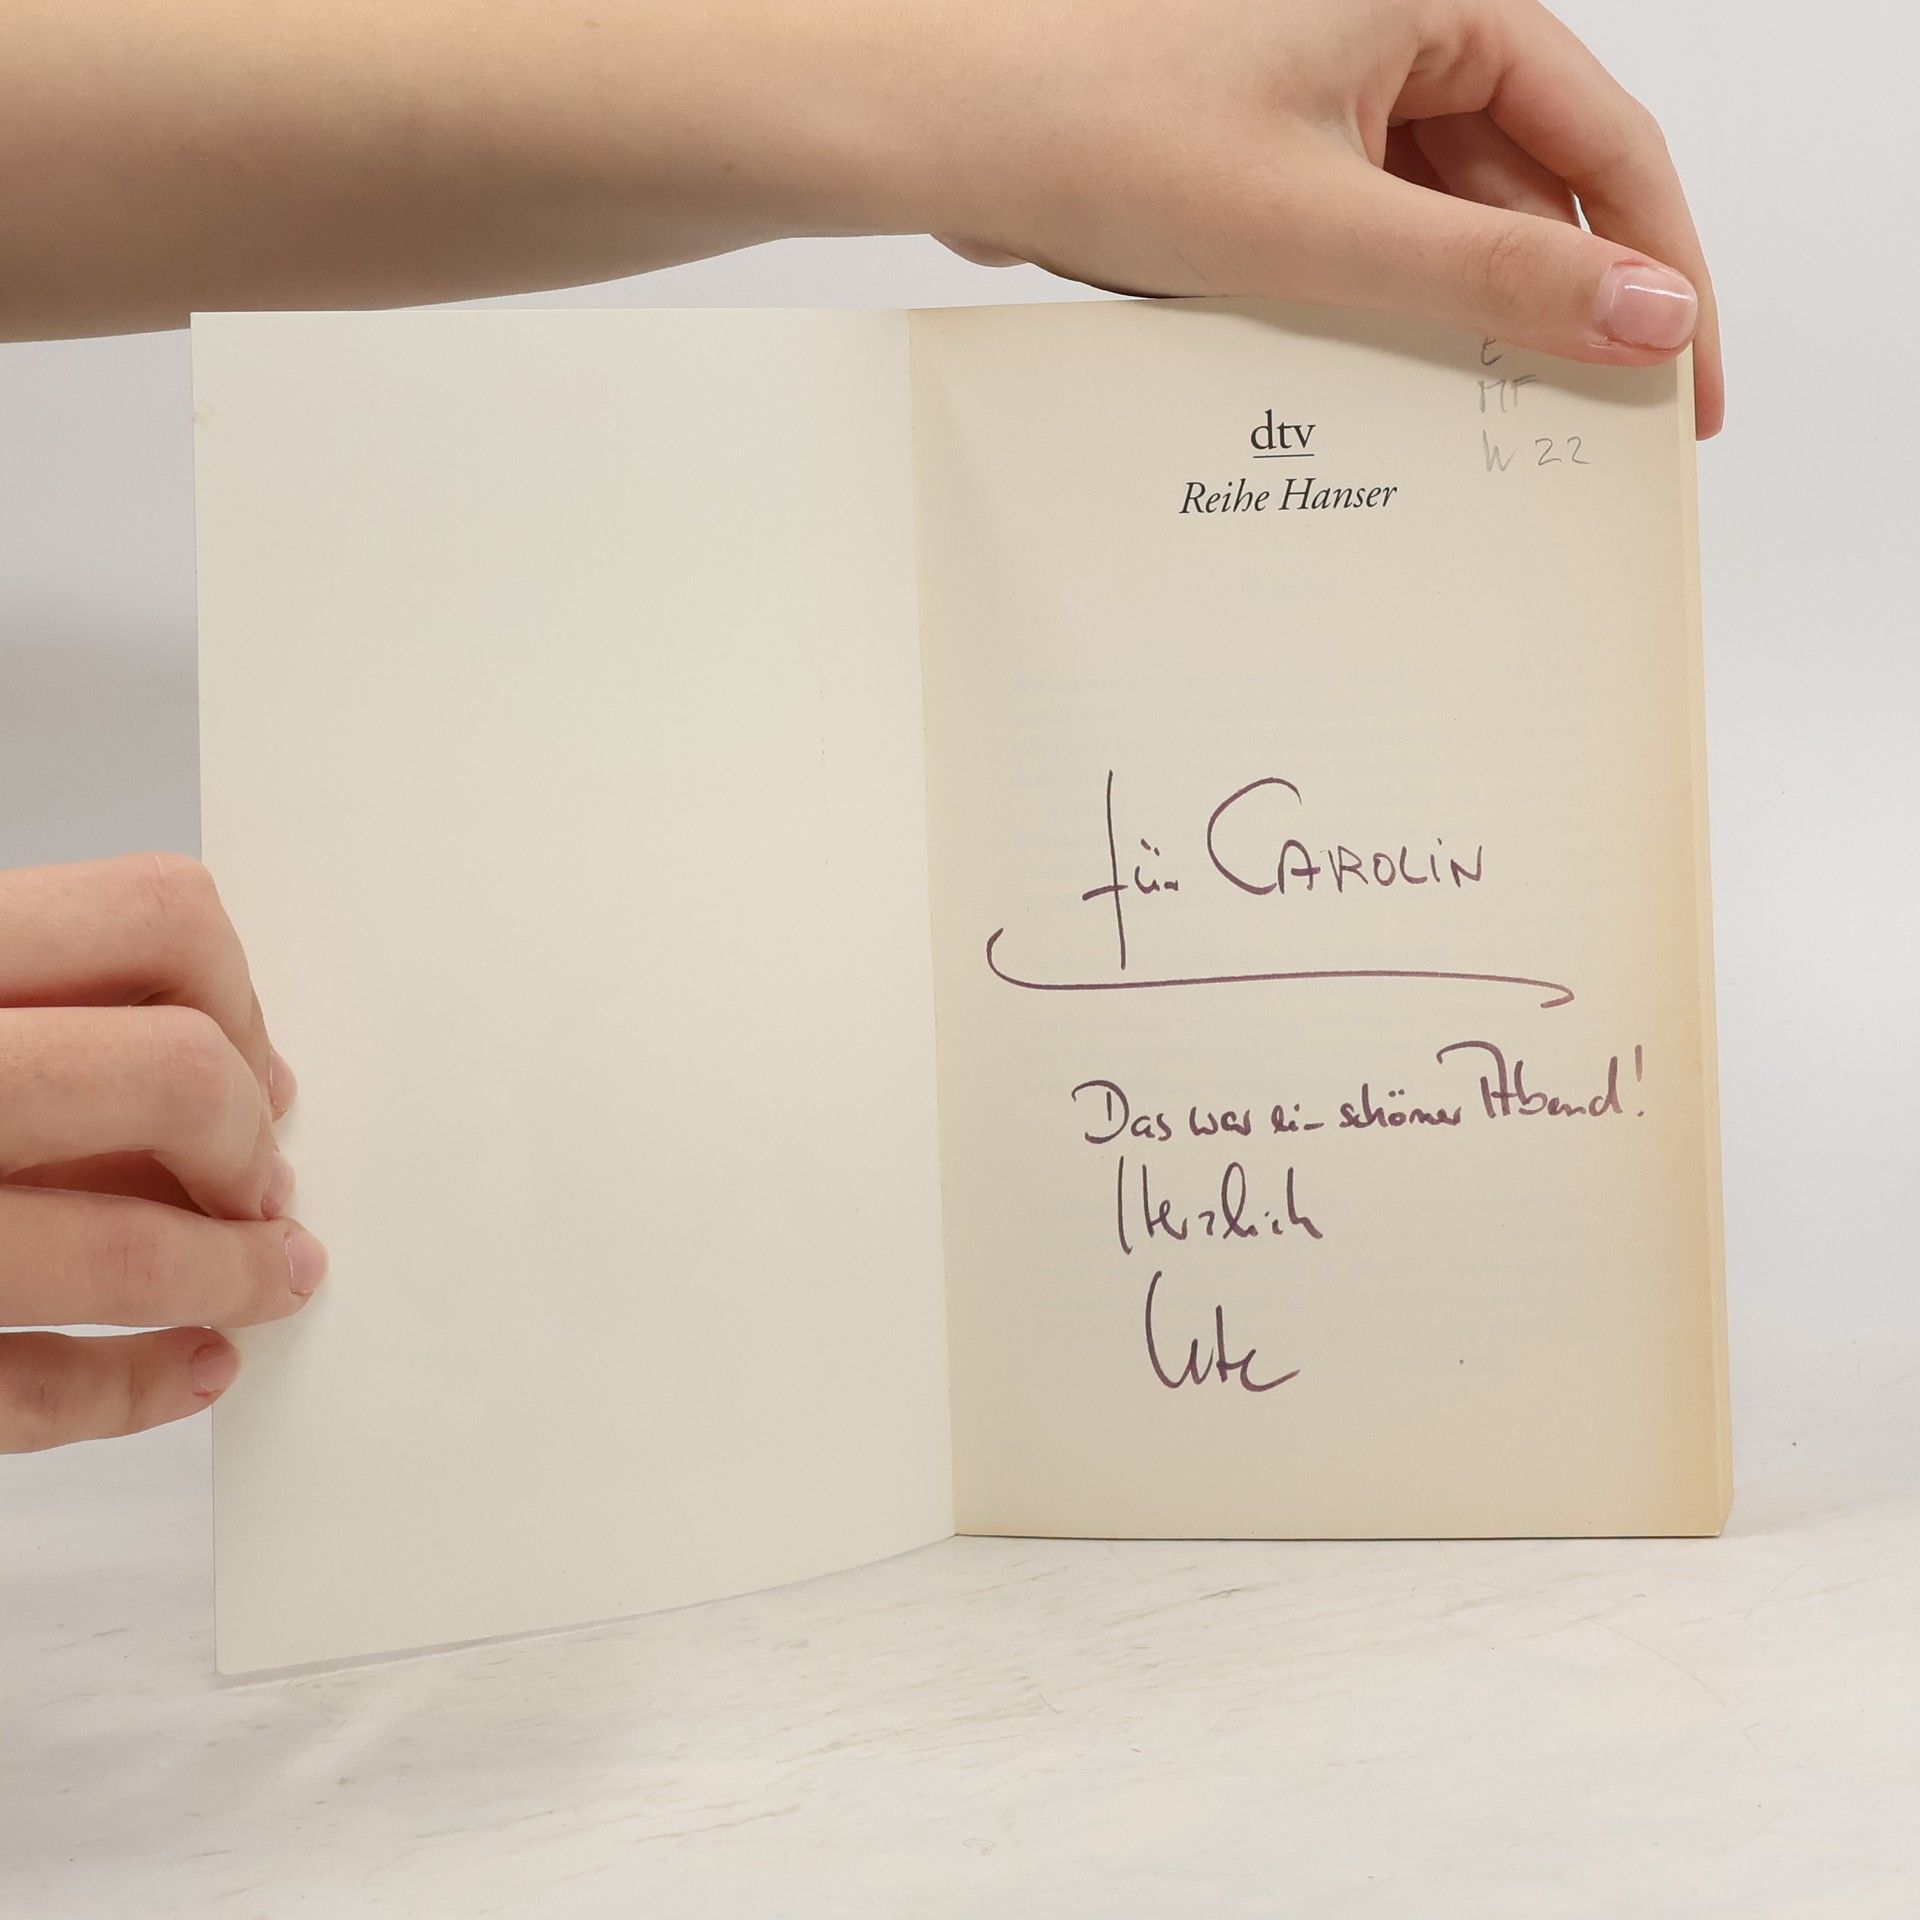 E
MF
W 22
dtv
Reihe Hanser
für CAROLiN
Das war ein schöner Abend!
Herzlich
Ute